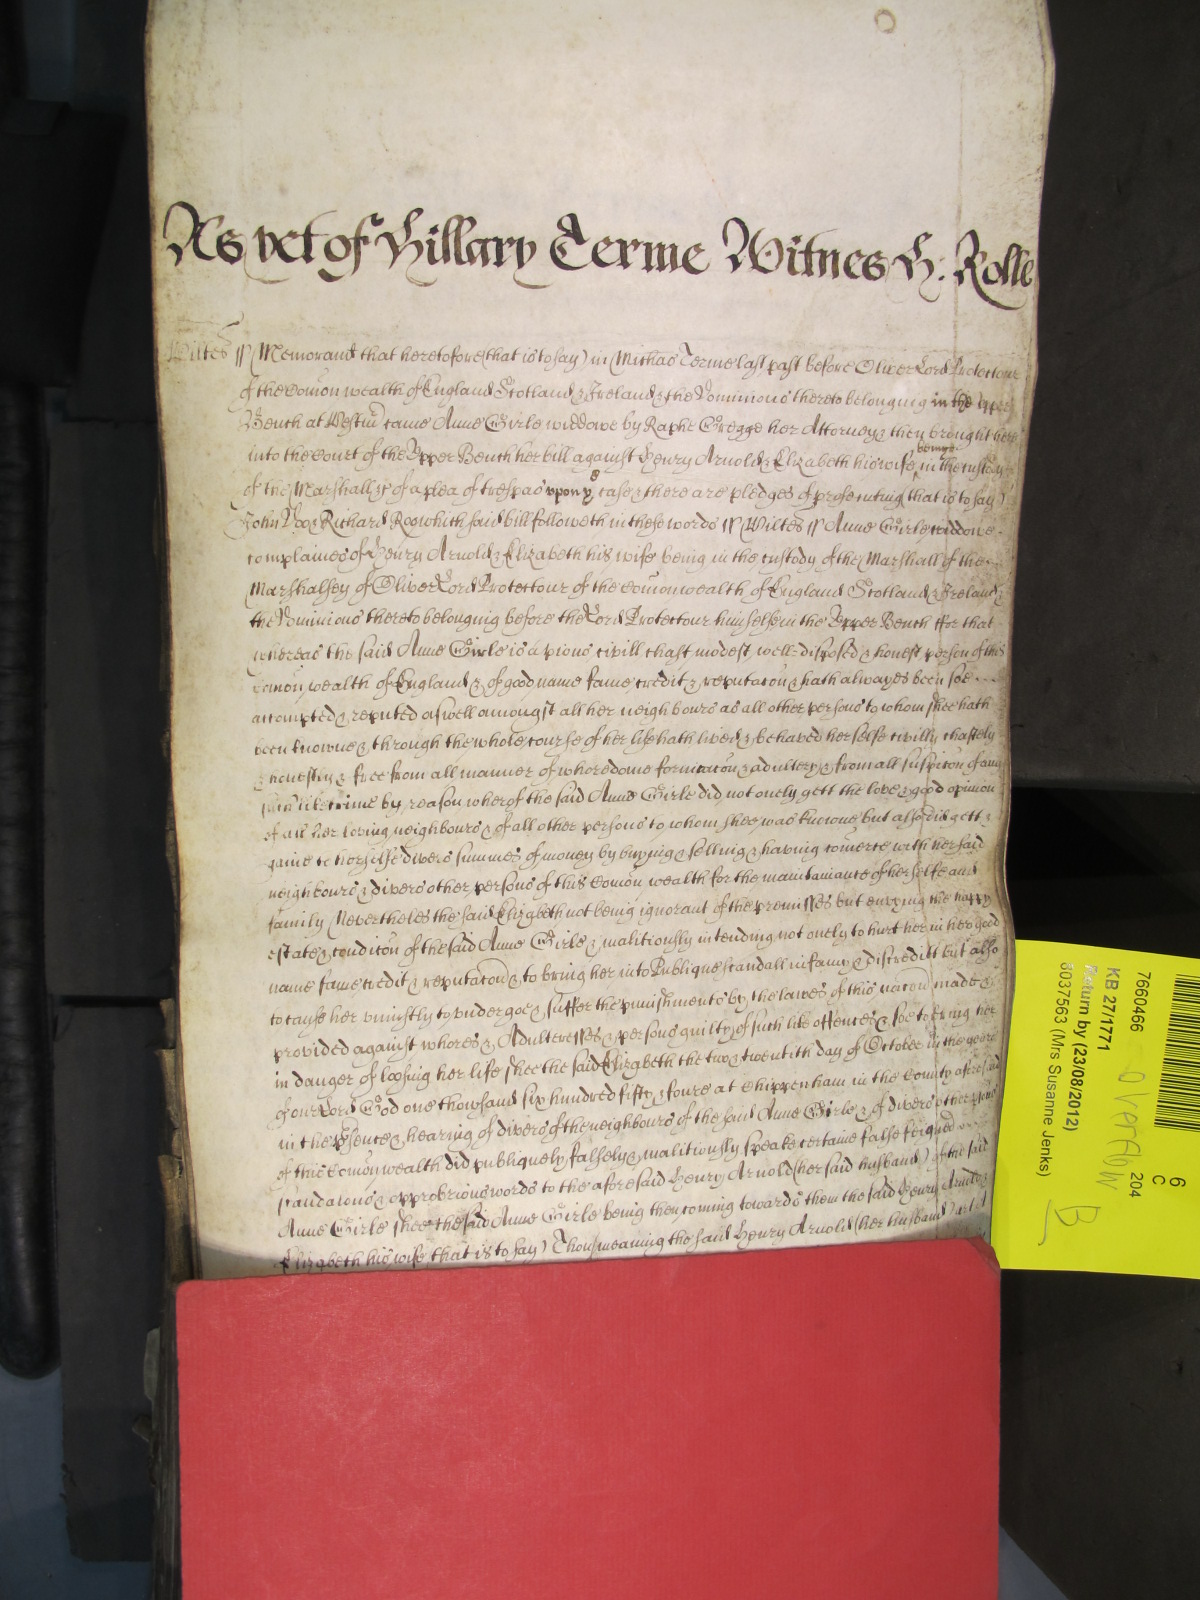 As yet of Hillary Terme Witnes H: Rolle
Wiltes ss Memorand that heretofore (that is to say) in Michas Terme last past before Oliver Lord Protectour
of the Comon wealth of England Scotland & Ireland & the Dominions thereto belonging in the Upper
Bench at Westm came Anne Girle widdowe by Raphe Gregge her Attorney & then brought here
into the Court of the Upper Bench her bill against Henry Arnold & Elizabeth his wife being in the custody
of the Marshall &c of a plea of trespas upon ye case & there are pledges of prosecuting that is to say)
John Doo & Richard Roo which said bill followeth in these words ss Wiltes ss Anne Girle widdowe
complaines of Henry Arnold & Elizabeth his wife being in the custody of the Marshall of the
Marshalsey of Oliver Lord Protectour of the Comonwealth of England Scotland & Ireland &
the Dominions thereto belonging before the Lord Protectour himselfe in the Upper Bench ffor that
whereas the said Anne Girle is a pious civill chast modest well-disposed & honest person of this
comon wealth of England & of good name fame credit & reputacon & hath alwayes been soe
accompted & reputed aswell amongst all her neighbours as all other persons to whom shee hath
been knowne & through the whole course of her life hath lived & behaved her selfe civilly chastely
& honestly & free from all manner of whoredome fornicacon & adultery & from all suspicon of any
such like crime by reason wherof the said Anne Girle did not onely gett the love & good opinion
of all her loving neighbours & of all other persons to whom shee was knowne but also did gett &
gaine to her selfe divers summes of money by buying & selling & having comerce with her said
neighbours & divers other persons of this Comon wealth for the maintaniance of her selfe and
family Nevertheles the said Elizabeth not being ignorant of the premisses but envying the happy
estate & condicon of the said Anne Girle & malitiously intending not onely to hurt her in her good
name fame credit & reputacon & to bring her into Publique scandall infamy & discreditt but also
to cause her uniustly to undergoe & suffer the punishments by the lawes of this nacon made &
provided against whores & Adulteresses & persons guilty of such like offences & soe to bring her
in danger of loosing her life shee the said Elizabeth the two & twentith day of October in the yeare
of our Lord God one thowsand six hundred fifty & foure at Chippenham in the County aforesaid
in the psence & hearing of divers of the neighbours of the said Anne Girle & of divers other psons
of this Comonwealth did publiquely falsely & malitiously speake certaine false feigned
scandalous & opprobrious words to the aforesaid Henry Arnold (her said husband) of the said
Anne Girle shee the said Anne Girle being then coming towards them the said Henry Arnold &
Elizabeth his wife that is to say) Thou (meaning the said Henry Arnold (her husband)
6
C
204
7660466
KB 27/1771
Return by (23/08/2012)
8037563 (Mrs Susanne Jenks)
overflow
B